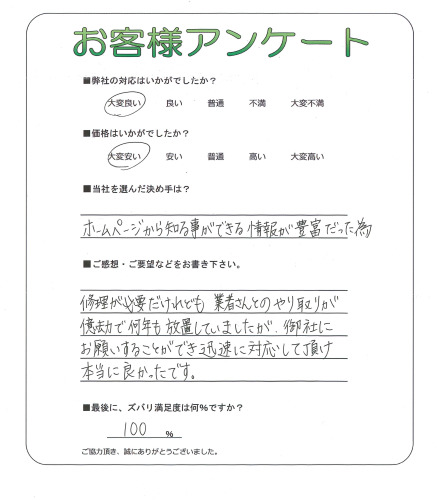 お客様アンケート
■弊社の対応はいかがでしたか？
大変良い 良い 普通 不満 大変不満
■価格はいかがでしたか？
大変安い 安い 普通 高い 大変高い
■当社を選んだ決め手は？
ホームページから知る事ができる情報が豊富だった為
■ご感想・ご要望などをお書き下さい。
修理が必要だけれども 業者さんとのやり取りが
億劫で何年も放置していましたが、御社に
お願いすることができ迅速に対応して頂け
本当に良かったです。
■最後に、ズバリ満足度は何%ですか？
100 %
ご協力頂き、誠にありがとうございました。